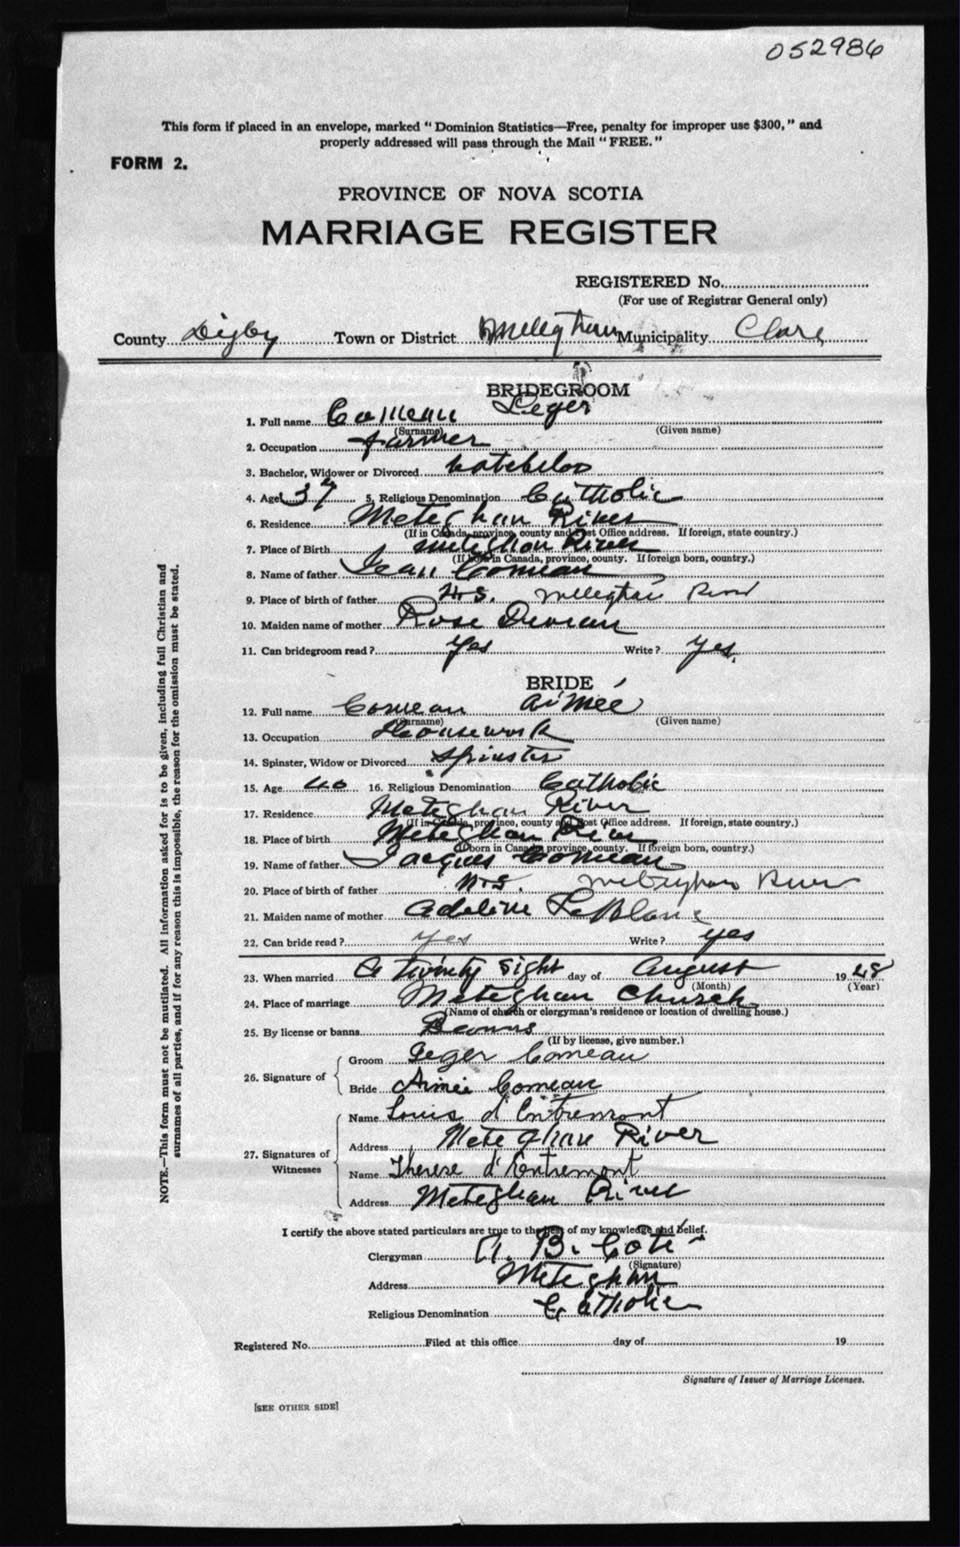 052986
This form if placed in an envelope, marked "Dominion Statistics—Free, penalty for improper use $300," and
properly addressed will pass through the Mail "FREE."
FORM 2.
PROVINCE OF NOVA SCOTIA
MARRIAGE REGISTER
REGISTERED No.
(For use of Registrar General only)
County Digby Town or District Meteghan Municipality Clare
BRIDEGROOM
1. Full name Comeau Leger
(Surname) (Given name)
2. Occupation farmer
3. Bachelor, Widower or Divorced batchelor
4. Age 37 5. Religious Denomination Catholic
6. Residence Meteghan River
(If in Canada, province, county and Post Office address. If foreign, state country.)
7. Place of Birth Meteghan River
(If born in Canada, province, county. If foreign born, country.)
8. Name of father Jean Comeau
9. Place of birth of father N.S. Meteghan River
10. Maiden name of mother Rose
11. Can bridegroom read? yes Write? yes.
BRIDE
12. Full name Comeau Aimée
(Surname) (Given name)
13. Occupation Housework
14. Spinster, Widow or Divorced Spinster
15. Age 40 16. Religious Denomination Catholic
17. Residence Meteghan River
(If in Canada, province, county and Post Office address. If foreign, state country.)
18. Place of birth Meteghan River
(If born in Canada province, county. If foreign born, country.)
19. Name of father Jacques Comeau
20. Place of birth of father N.S. Meteghan River
21. Maiden name of mother Adeline LeBlanc
22. Can bride read? yes Write? yes
23. When married twenty eight day of August 1948
(Month) (Year)
24. Place of marriage Meteghan Church
(Name of church or clergyman's residence or location of dwelling house.)
25. By license or banns Banns
(If by license, give number.)
26. Signature of
Groom Leger Comeau
Bride Aimée Comeau
27. Signatures of Witnesses
Name Louis d'Entremont
Address Meteghan River
Name Therese d'Entremont
Address Meteghan River
I certify the above stated particulars are true to the best of my knowledge and belief.
Clergyman B. Coté
(Signature)
Address Meteghan
Religious Denomination Catholic
Registered No. Filed at this office day of 19
Signature of Issuer of Marriage Licenses.
[SEE OTHER SIDE]
NOTE.—This form must not be mutilated. All information asked for is to be given, including full Christian and
surnames of all parties, and if for any reason this is impossible, the reason for the omission must be stated.